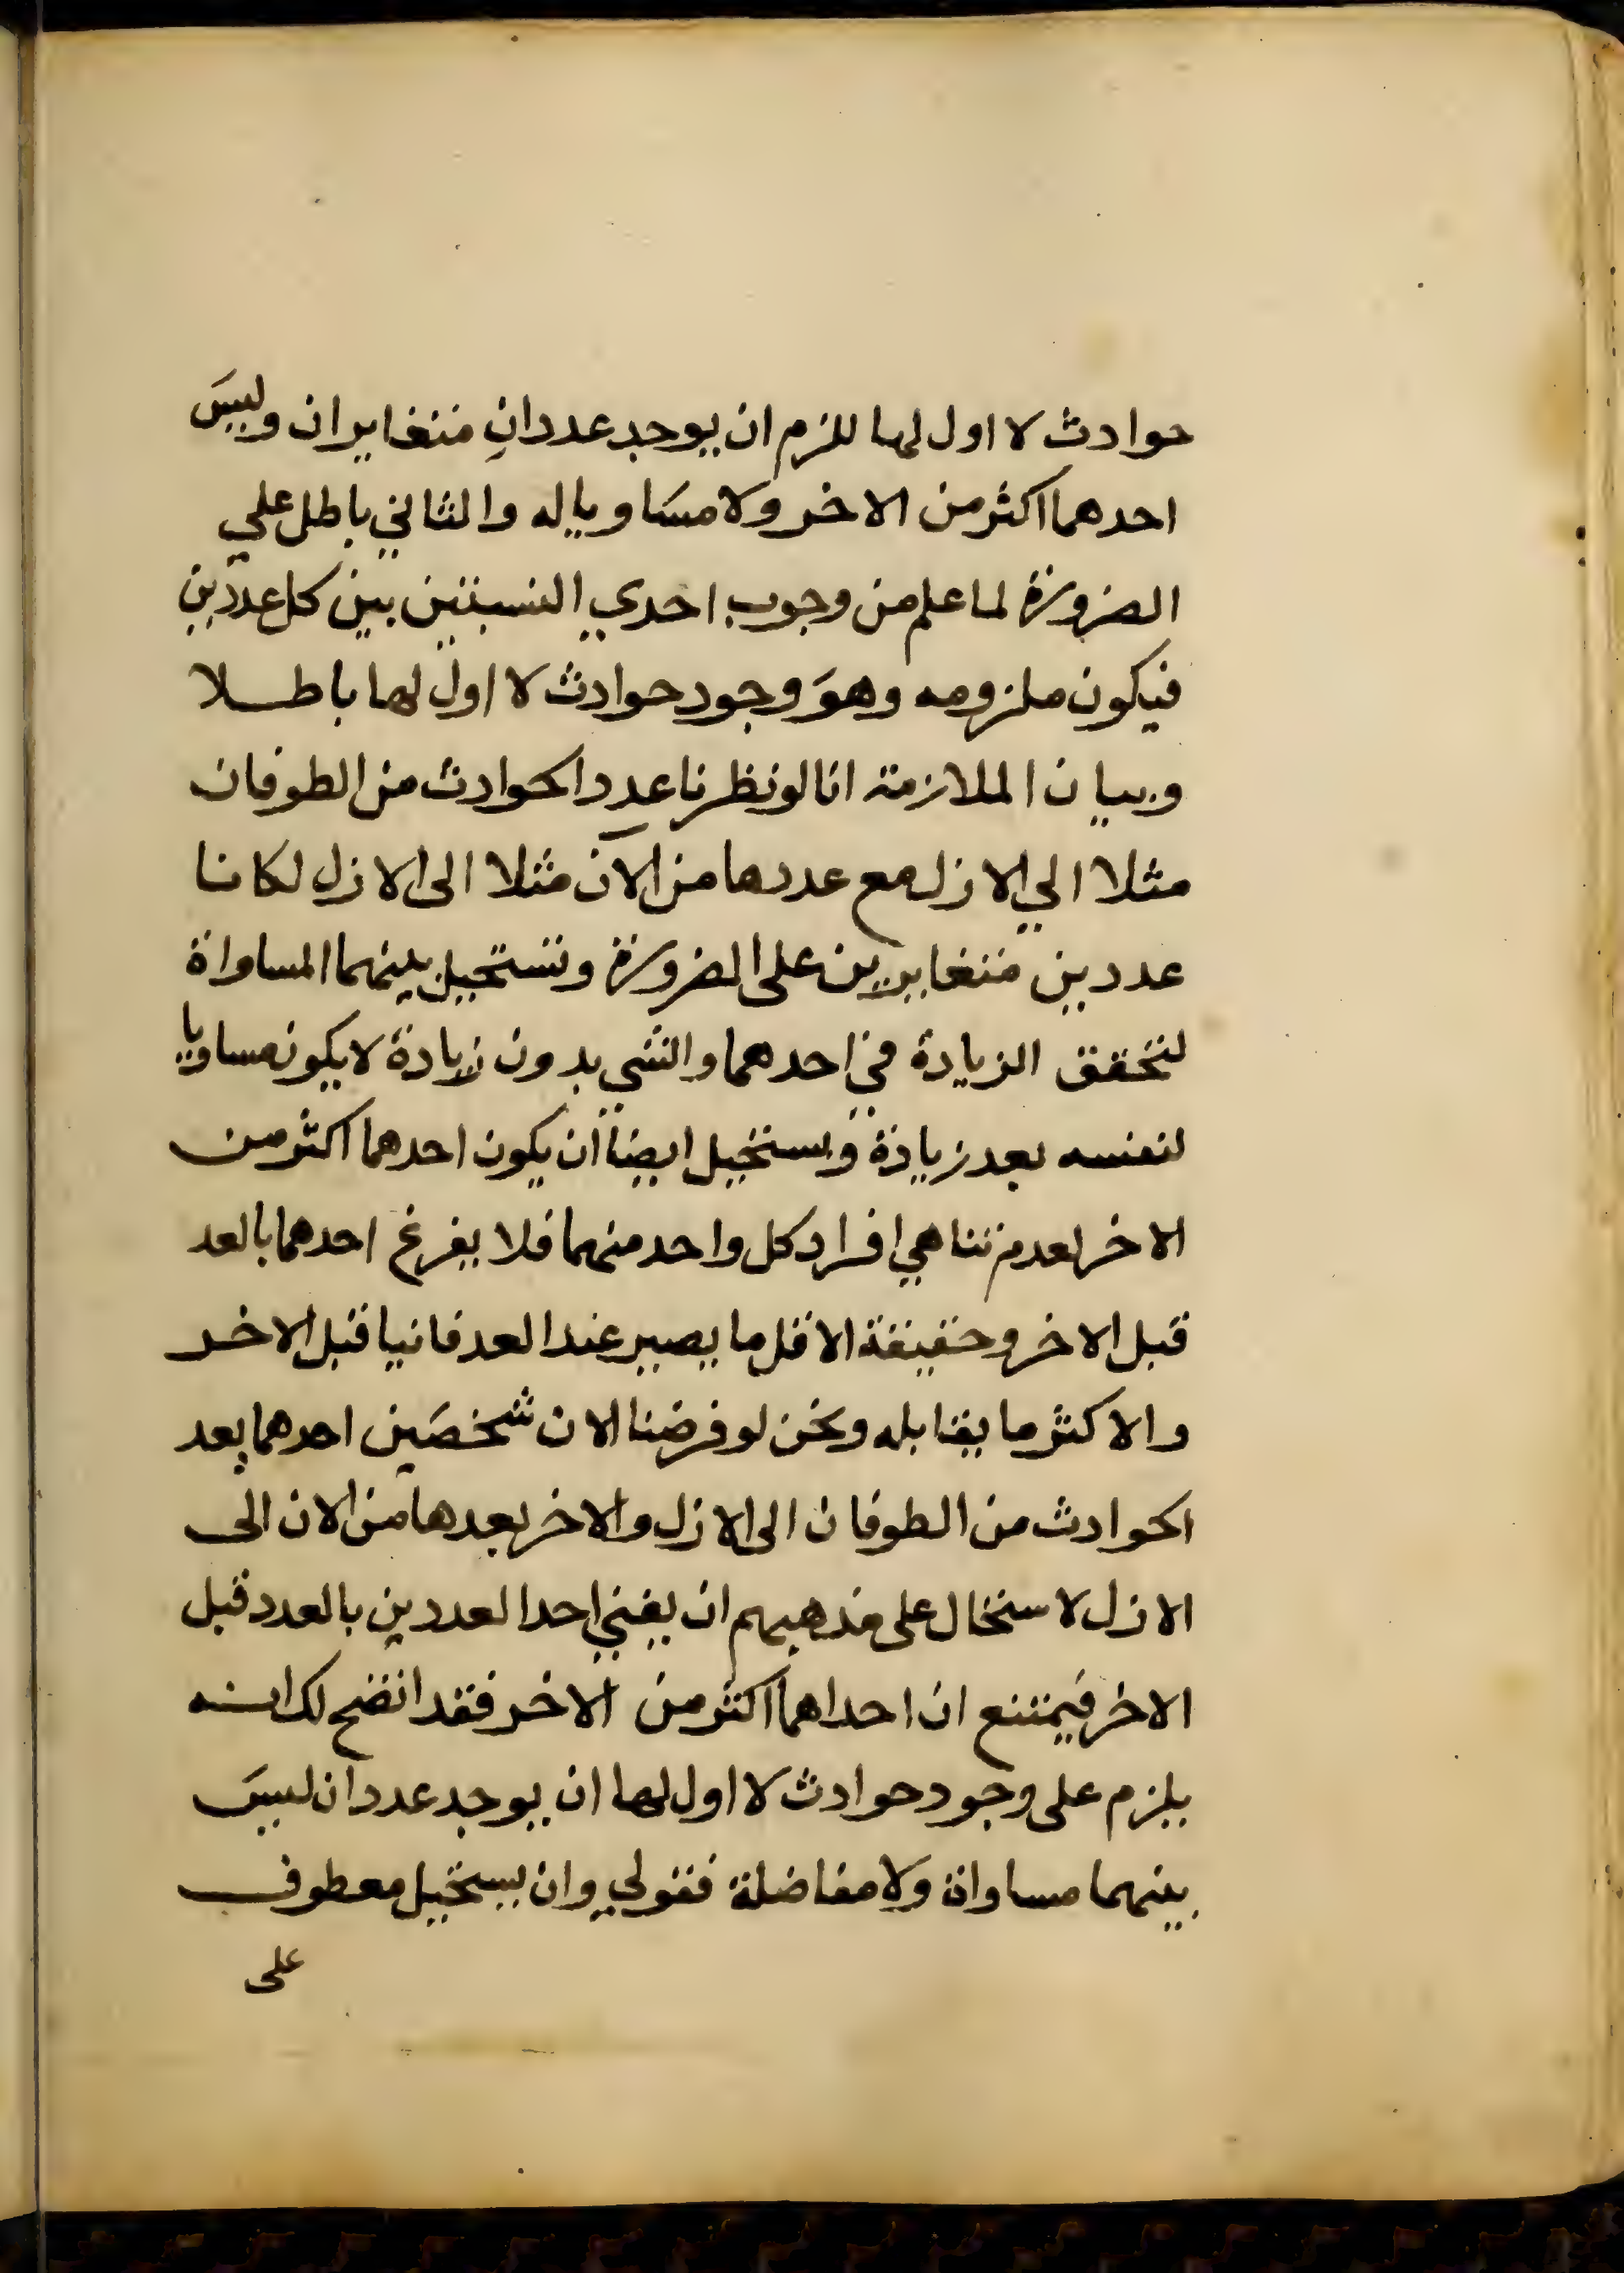 حوادث لا اول لها للزم ان يوجد عددانِ متغايران وليسَ
احدهما اكثر من الاخر ولا مسَاويا له والثاني باطل علي
الضرورة لما علم من وجوب احدي النسبتين بين كل عددين
فيكون ملزومه وهوَ وجود حوادث لا اول لها باطلا
وبيان الملازمة انا لو نظرنا عدد الحوادث من الطوفان
مثلا الي الازل مع عددها من الآن مثلا الى الازل لكانا
عددين متغايرين على الضرورة وتستحيل بينهما المساواة
لتحقق الزيادة في احدهما والشي بدون زيادة لا يكون مساويا
لنفسه بعد زيادة ويستحيل ايضا ان يكون احدهما اكثر من
الاخر لعدم تناهي افراد كل واحد منهما فلا يفرغ احدهما بالعد
قبل الاخر وحقيقة الاقل ما يصير عند العد فانيا قبل الاخر
والاكثر ما يقابله ونحن لو فرضنا الان شخصَين احدهما يعد
الحوادث من الطوفان الى الازل والاخر يعدها من الان الى
الازل لاستحال على مذهبهم ان يفني احد العددين بالعدد قبل
الاخر فيمتنع ان احداهما اكثر من الاخر فقد اتضح لك انه
يلزم على وجود حوادث لا اول لها ان يوجد عددان ليسَ
بينهما مساواة ولا مفاضلة فقولي وان يستحيل معطوف
على